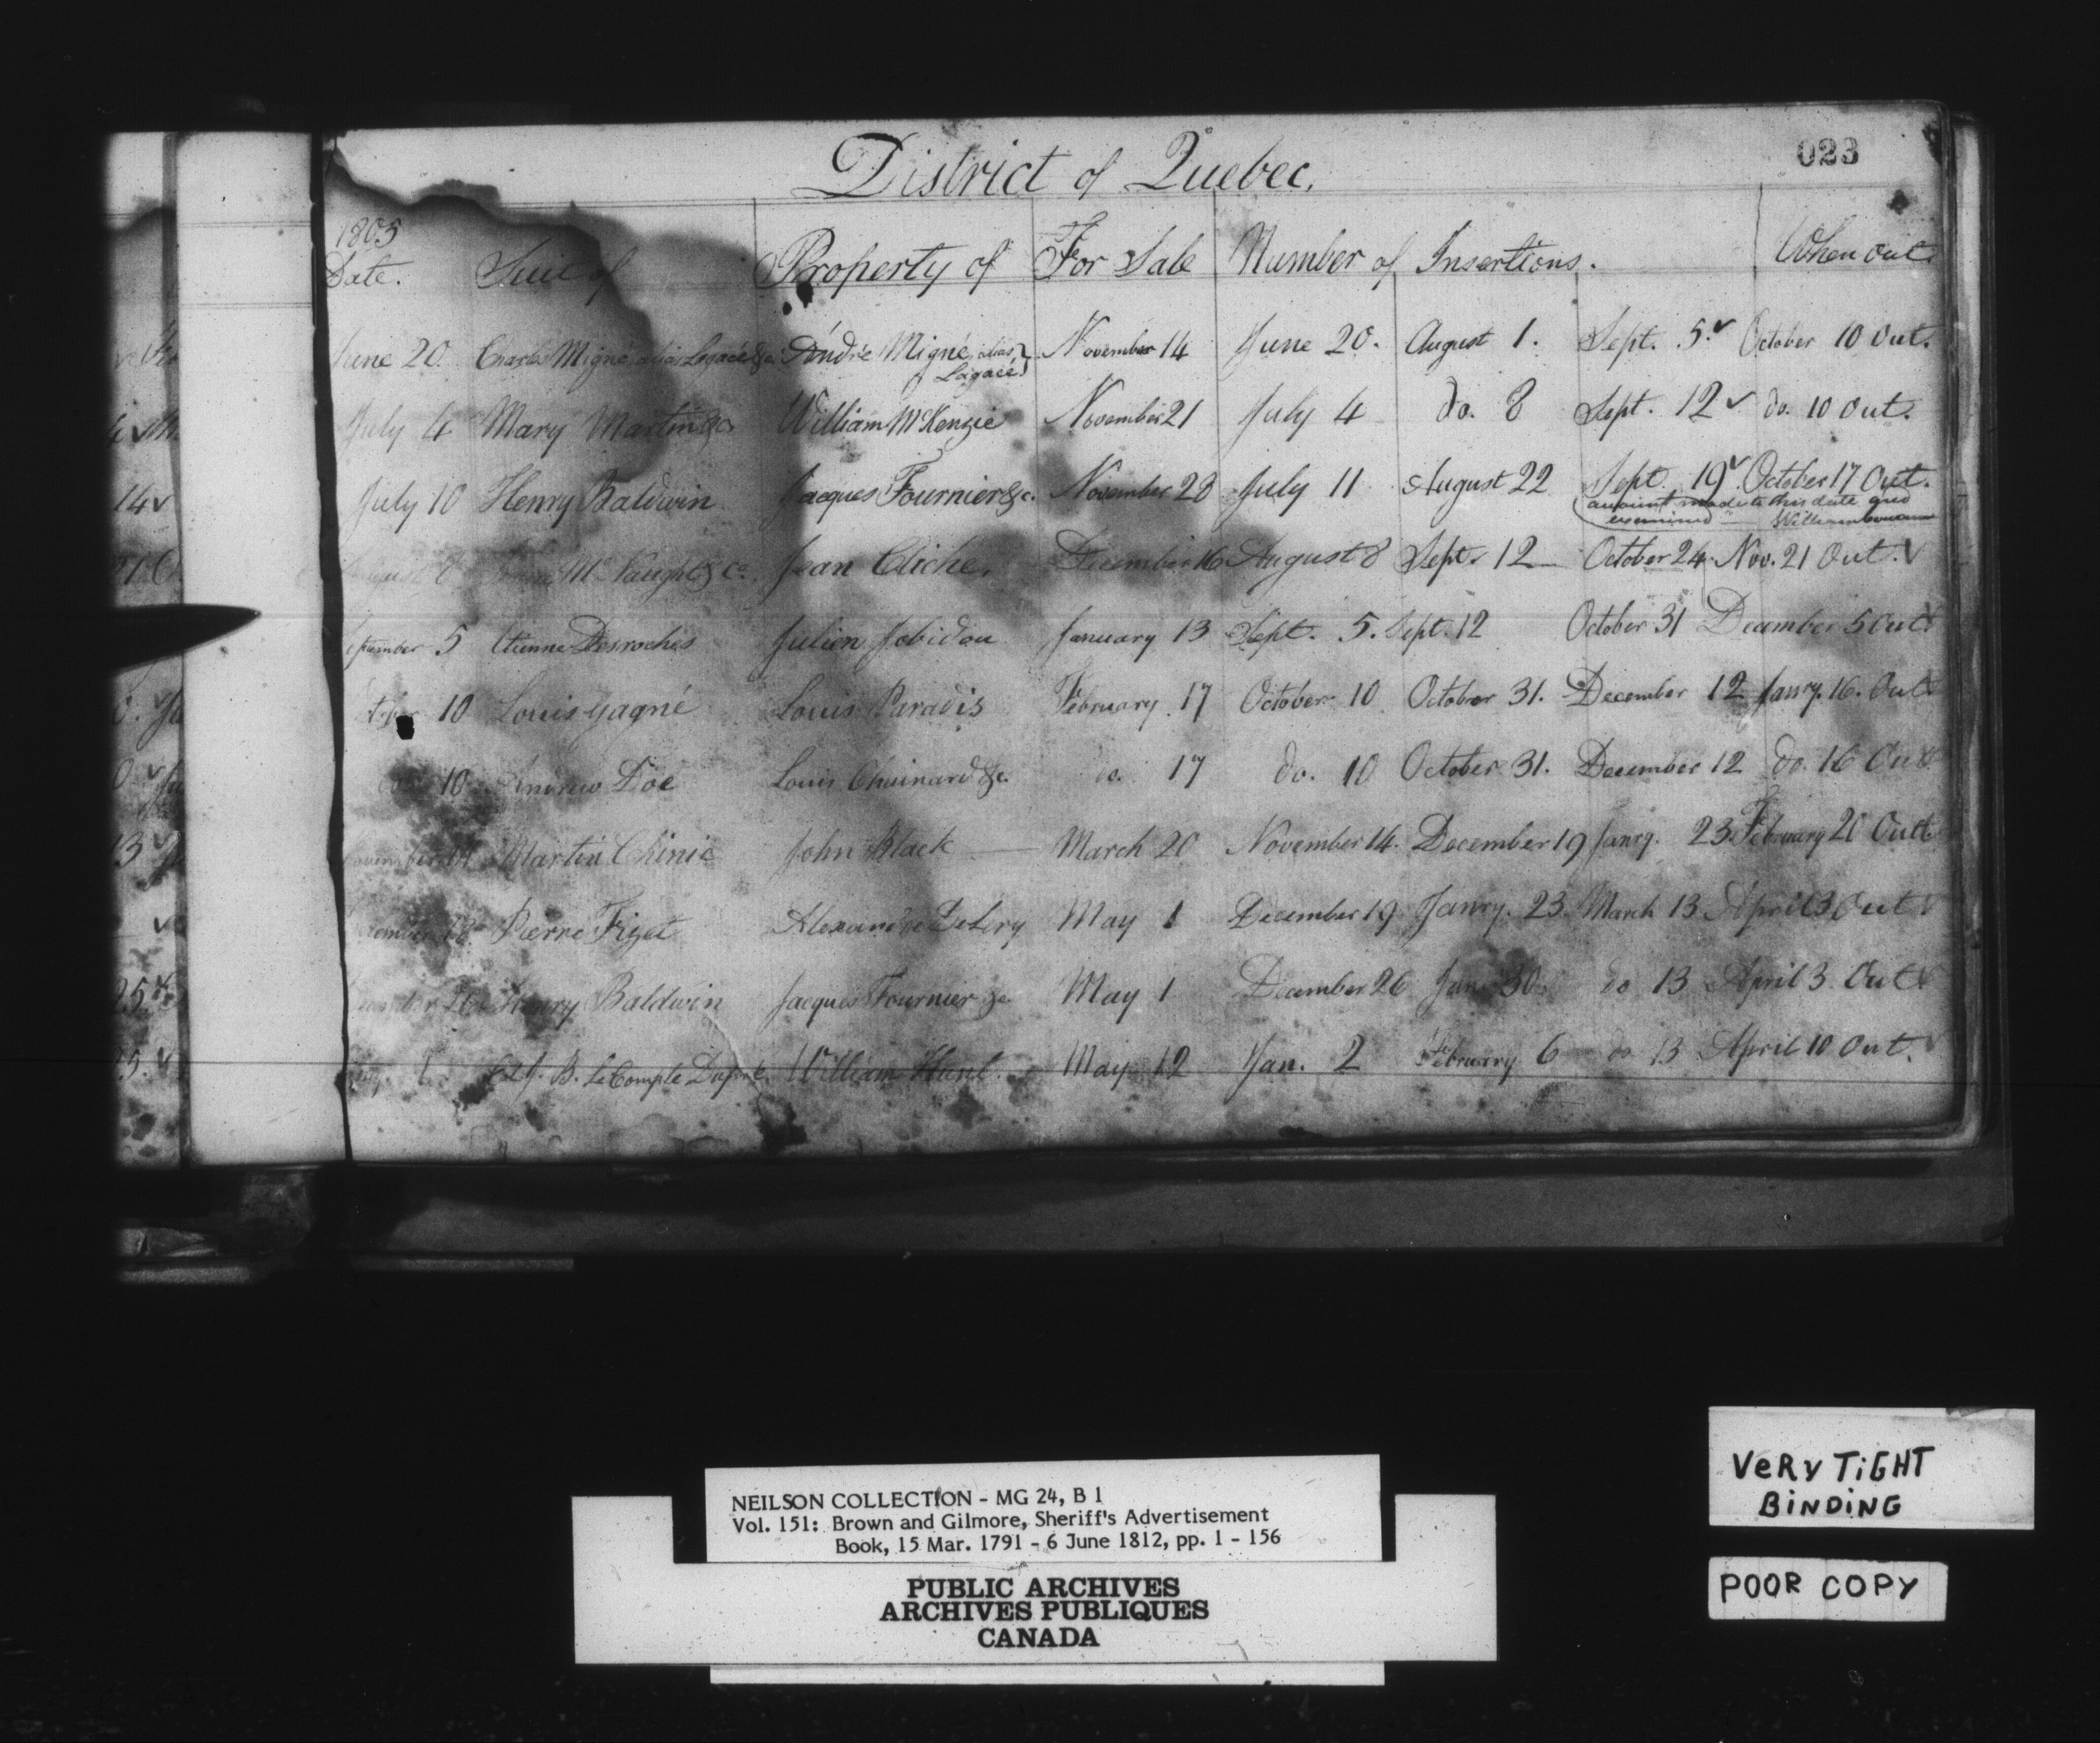 023
District of Quebec.
1805
Date. Suit of Property of For Sale Number of Insertions. When out
June 20. Charles Migné alias Lagacé &c. André Migné alias Lagacé November 14 June 20. August 1. Sept. 5. October 10 Out.
July 4 Mary Martin &c William McKenzie November 21 July 4 do. 8 Sept. 12 do. 10 Out.
July 10 Henry Baldwin Jacques Fournier &c. November 28 July 11 August 22 Sept. 19 October 17 Out.
amount made to this date and
examined
August 8 McNaught & Co. Jean Cliche. December 16 August 8 Sept. 12 October 24 Nov. 21 Out.
September 5 Etienne Desroches Julien Jobidou January 13 Sept. 5. Sept. 12 October 31 December 5 Out
October 10 Louis Gagné Louis Paradis February 17 October 10 October 31. December 12 Janry. 16. Out
do. 10 Andrew Doe Louis Chuinard &c. do. 17 do. 10 October 31. December 12 do. 16 Out
November 14 Martin Chinic John Black March 20 November 14. December 19 Janry. 23. February 20 Out
Pierre Fizet Alexandre Delery May 1 December 19 Janry. 23. March 13 April 3 Out
26 Henry Baldwin Jacques Fournier &c May 1 December 26 Jan. 30. do 13 April 3. Out
J. B. Le Compte Dupré William Hunt. May 12 Jan. 2 February 6 do 13 April 10 Out.
NEILSON COLLECTION - MG 24, B 1
Vol. 151: Brown and Gilmore, Sheriff's Advertisement
Book, 15 Mar. 1791 - 6 June 1812, pp. 1 - 156
PUBLIC ARCHIVES
ARCHIVES PUBLIQUES
CANADA
VERY TIGHT
BINDING
POOR COPY